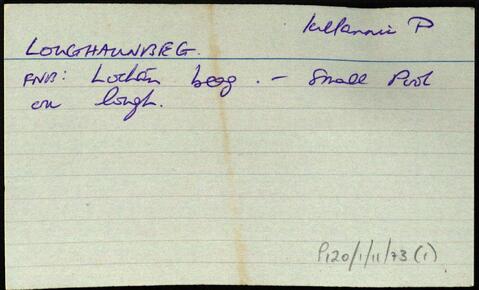 Killannin P
LOUGHAUNBEG.
FNB: Locháin beag. - Small Pool
or lough.
P120/1/11/73 (1)